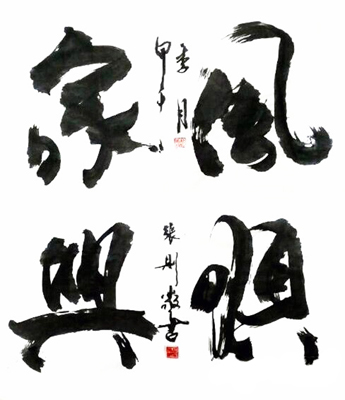 風順
家興
甲午
季月
張彤敬書